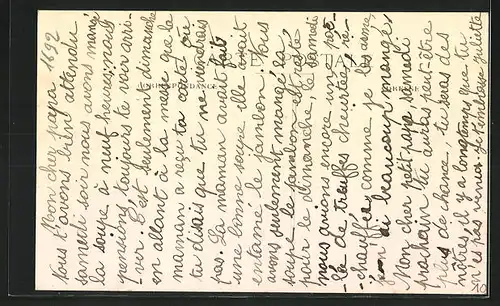 Mon cher papa 1692
Nous t'avons bien attendu
samedi soir nous avons mangé
la soupe à neuf heures, nous
pensions toujours te voir arri-
ver. C'est seulement dimanche
en allant à la messe que la
maman a reçu ta carte où
tu disais que tu ne viendrais
pas. La maman avait fait
une bonne soupe elle avait
entamé le jambon. Nous
avons seulement mangé la
soupe le jambon est resté
pour le dimanche, le samedi
nous avions encore une poë-
lée de truffes
chauffée comme je les aime
j'en ai beaucoup mangé.
Mon cher petit papa samedi
prochain tu auras peut-être
plus de chance, tu seras des
nôtres, il y a longtemps que tu
n'es pas venu. Je t'embrasse Juliette
CORRESPONDANCE
ADRESSE
10